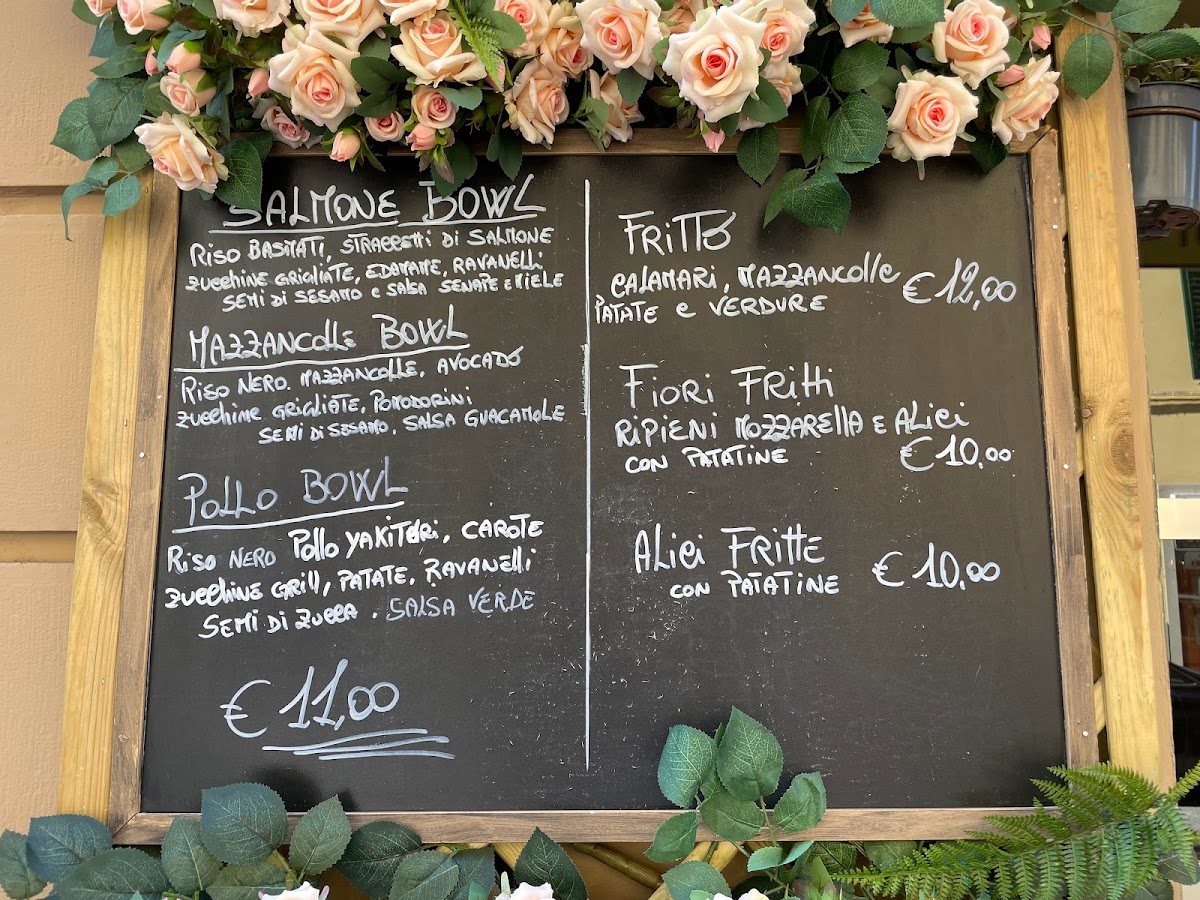 SALMONE BOWL
RISO BASMATI, STRACCETTI DI SALMONE
ZUCCHINE GRIGLIATE, EDAMAME, RAVANELLI
SEMI DI SESAMO E SALSA SENAPE E MIELE
MAZZANCOLLE BOWL
RISO NERO. MAZZANCOLLE, AVOCADO
ZUCCHINE GRIGLIATE, POMODORINI
SEMI DI SESAMO, SALSA GUACAMOLE
POLLO BOWL
RISO NERO POLLO YAKITORI, CAROTE
ZUCCHINE GRILL, PATATE, RAVANELLI
SEMI DI ZUCCA. SALSA VERDE
€ 11,00
FRITTO
CALAMARI, MAZZANCOLLE
PATATE E VERDURE € 12,00
FIORI FRITTI
RIPIENI MOZZARELLA E ALICI
CON PATATINE € 10,00
ALICI FRITTE
CON PATATINE € 10,00